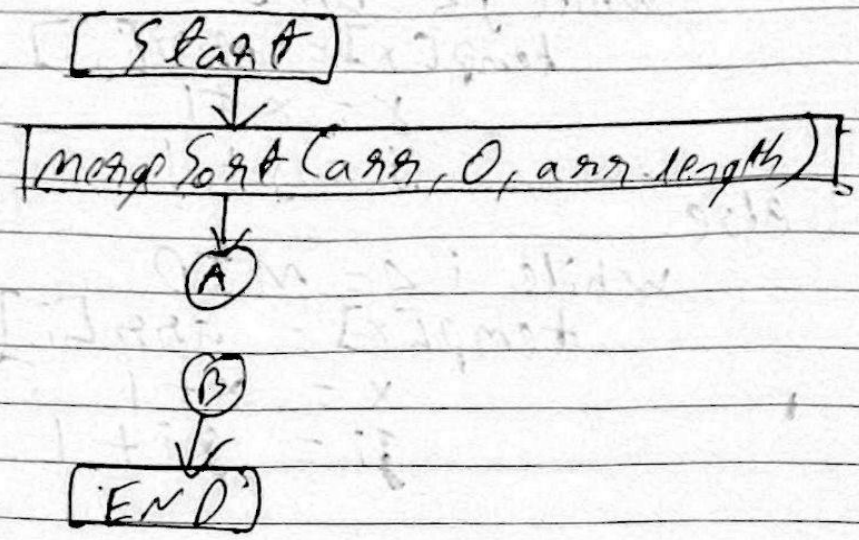 Start
mergeSort(arr, 0, arr.length)
A
B
END